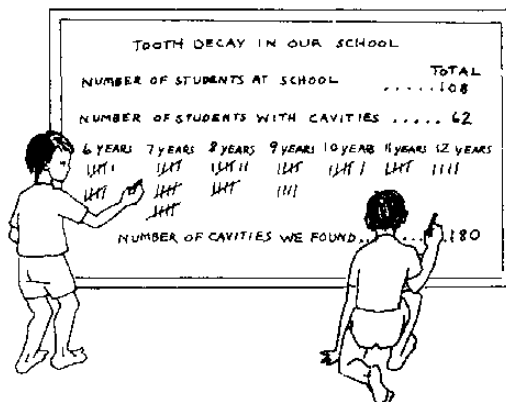 TOOTH DECAY IN OUR SCHOOL
TOTAL
NUMBER OF STUDENTS AT SCHOOL ......108
NUMBER OF STUDENTS WITH CAVITIES ..... 62
6 YEARS 7 YEARS 8 YEARS 9 YEARS 10 YEARS 11 YEARS 12 YEARS
NUMBER OF CAVITIES WE FOUND............180